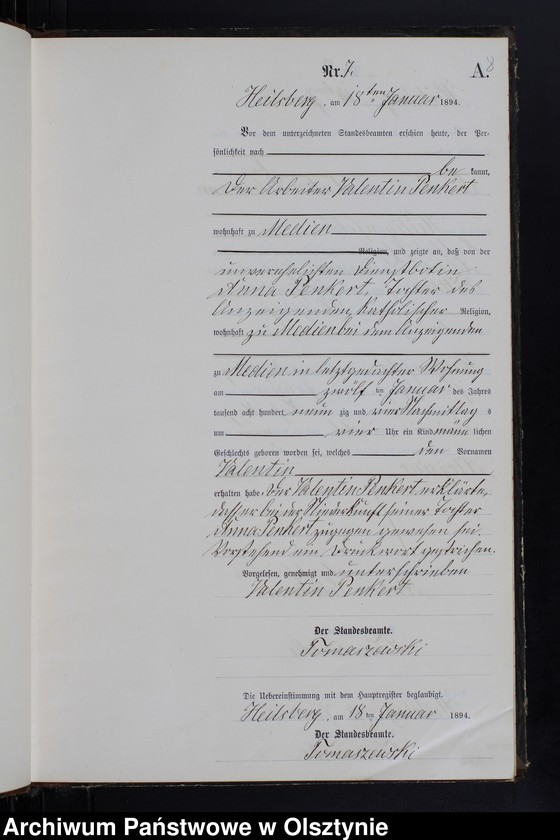 Nr. 7.
A.
8
Heilsberg, am 18ten Januar 1894.
Vor dem unterzeichneten Standesbeamten erschien heute, der Per-
sönlichkeit nach
be kannt,
Der Arbeiter Valentin Penkert
wohnhaft zu Medien
Religion, und zeigte an, daß von der
unverehelichten Dienstbotin
Anna Penkert, Tochter des
Anzeigenden, katholischer Religion,
wohnhaft zu Medien bei dem Anzeigenden
zu Medien in letztgedachter Wohnung
am zwölf ten Januar des Jahres
tausend acht hundert neun zig und vier Nachmittag s
um vier Uhr ein Kind männ lichen
Geschlechts geboren worden sei, welches den Vornamen
Valentin
erhalten habe. Der Valentin Penkert erklärte,
daß er bei der Niederkunft seiner Tochter
Anna Penkert zugegen gewesen sei.
Vorstehend ein Druckwort gestrichen.
Vorgelesen, genehmigt und unterschrieben
Valentin Penkert
Der Standesbeamte.
Tomaszewski
Die Uebereinstimmung mit dem Hauptregister beglaubigt.
Heilsberg, am 18 ten Januar 1894.
Der Standesbeamte.
Tomaszewski
Archiwum Państwowe w Olsztynie